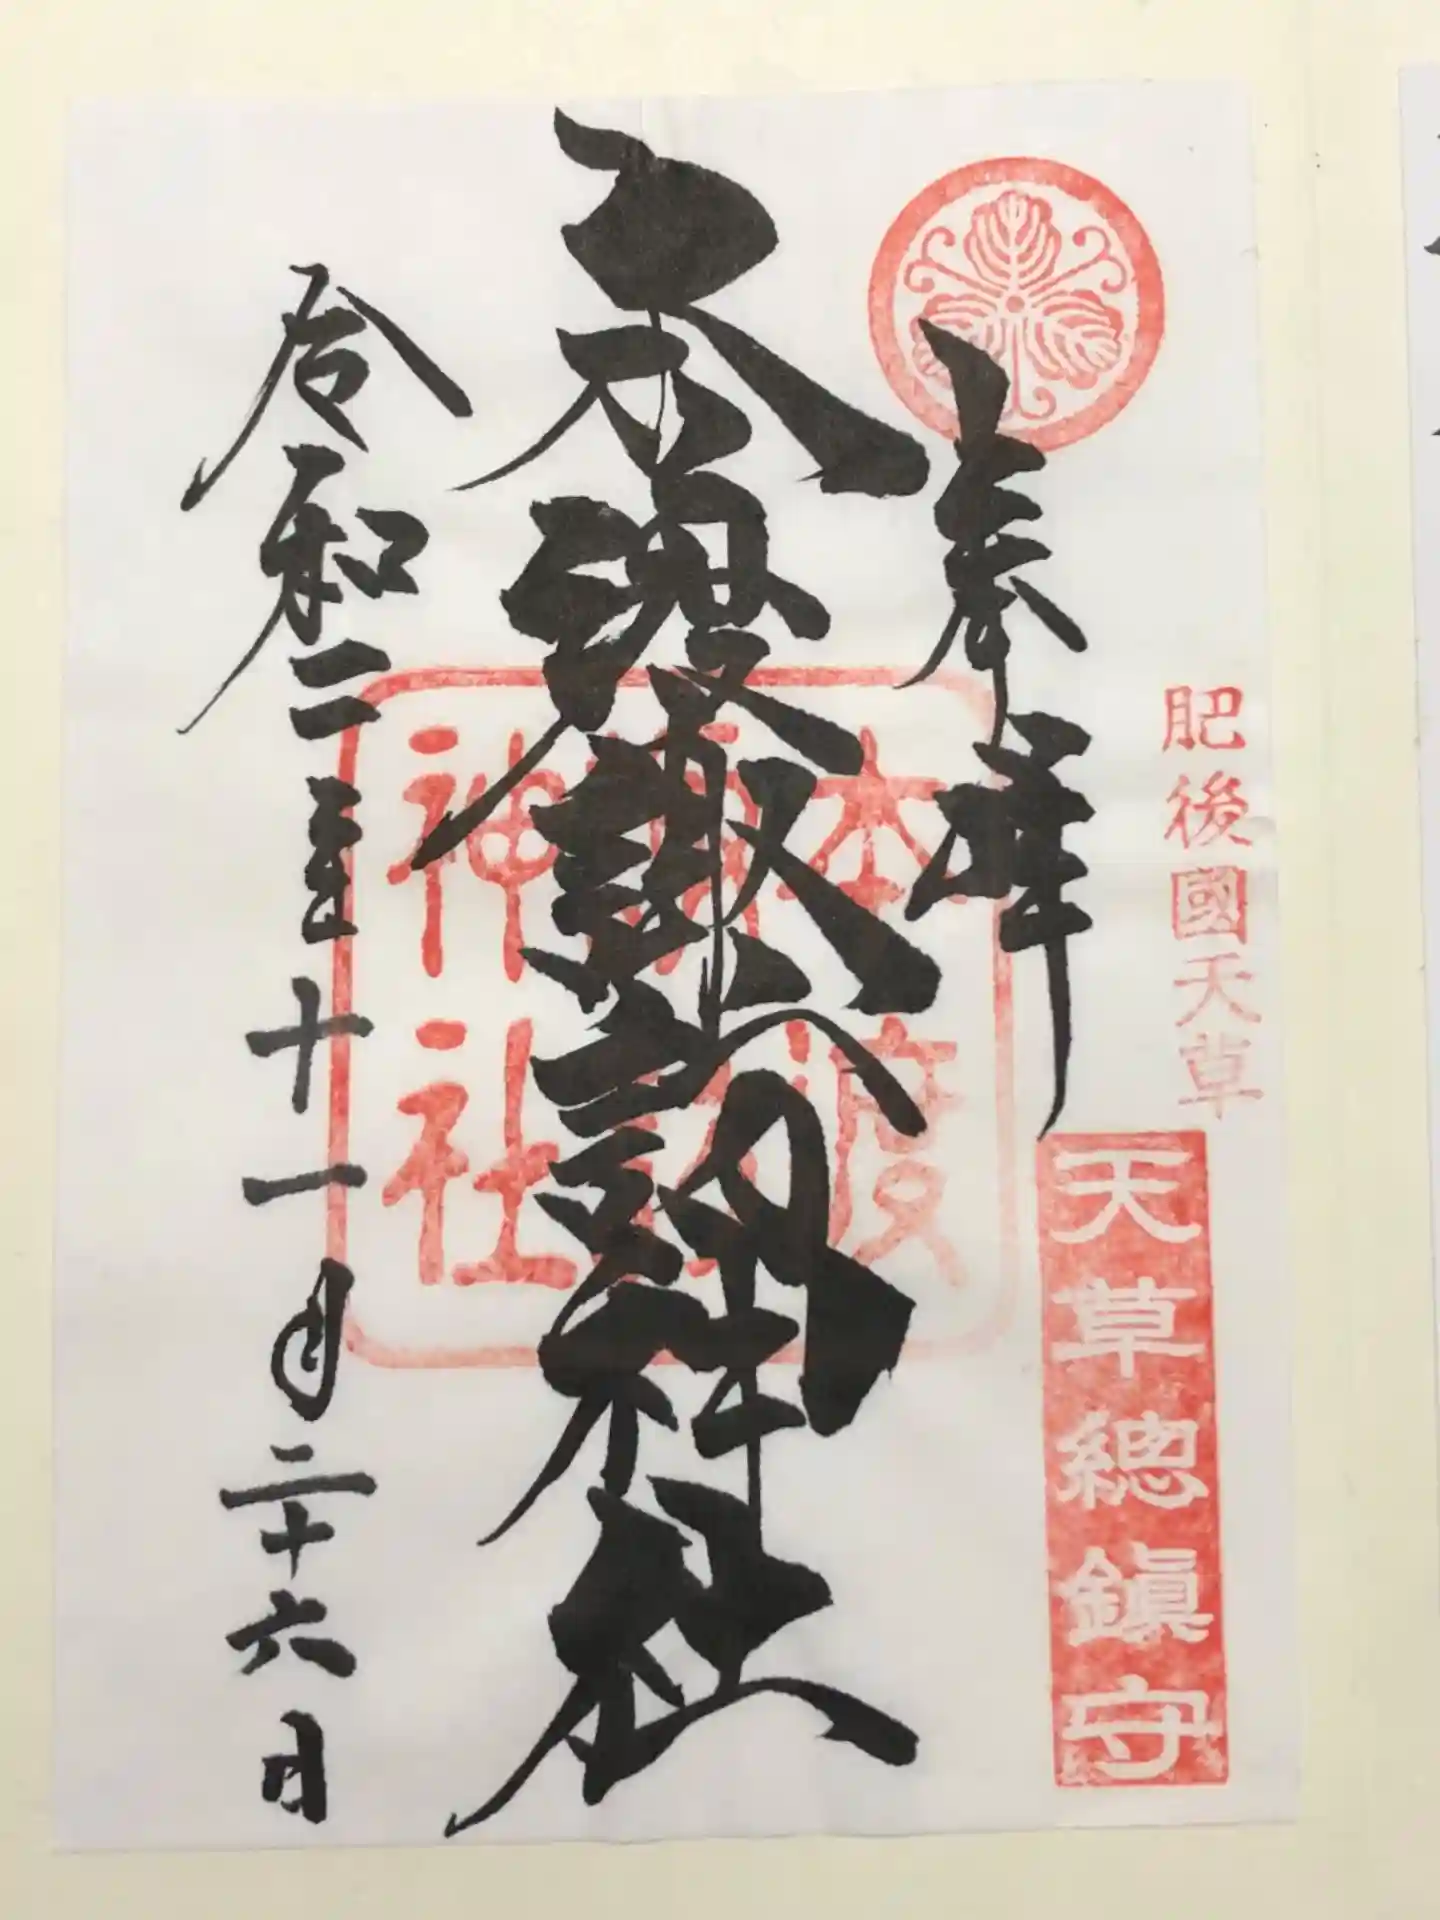 肥後國天草
天草總鎮守
奉拝
本渡諏訪神社
本渡
神社
令和二年十一月二十六日